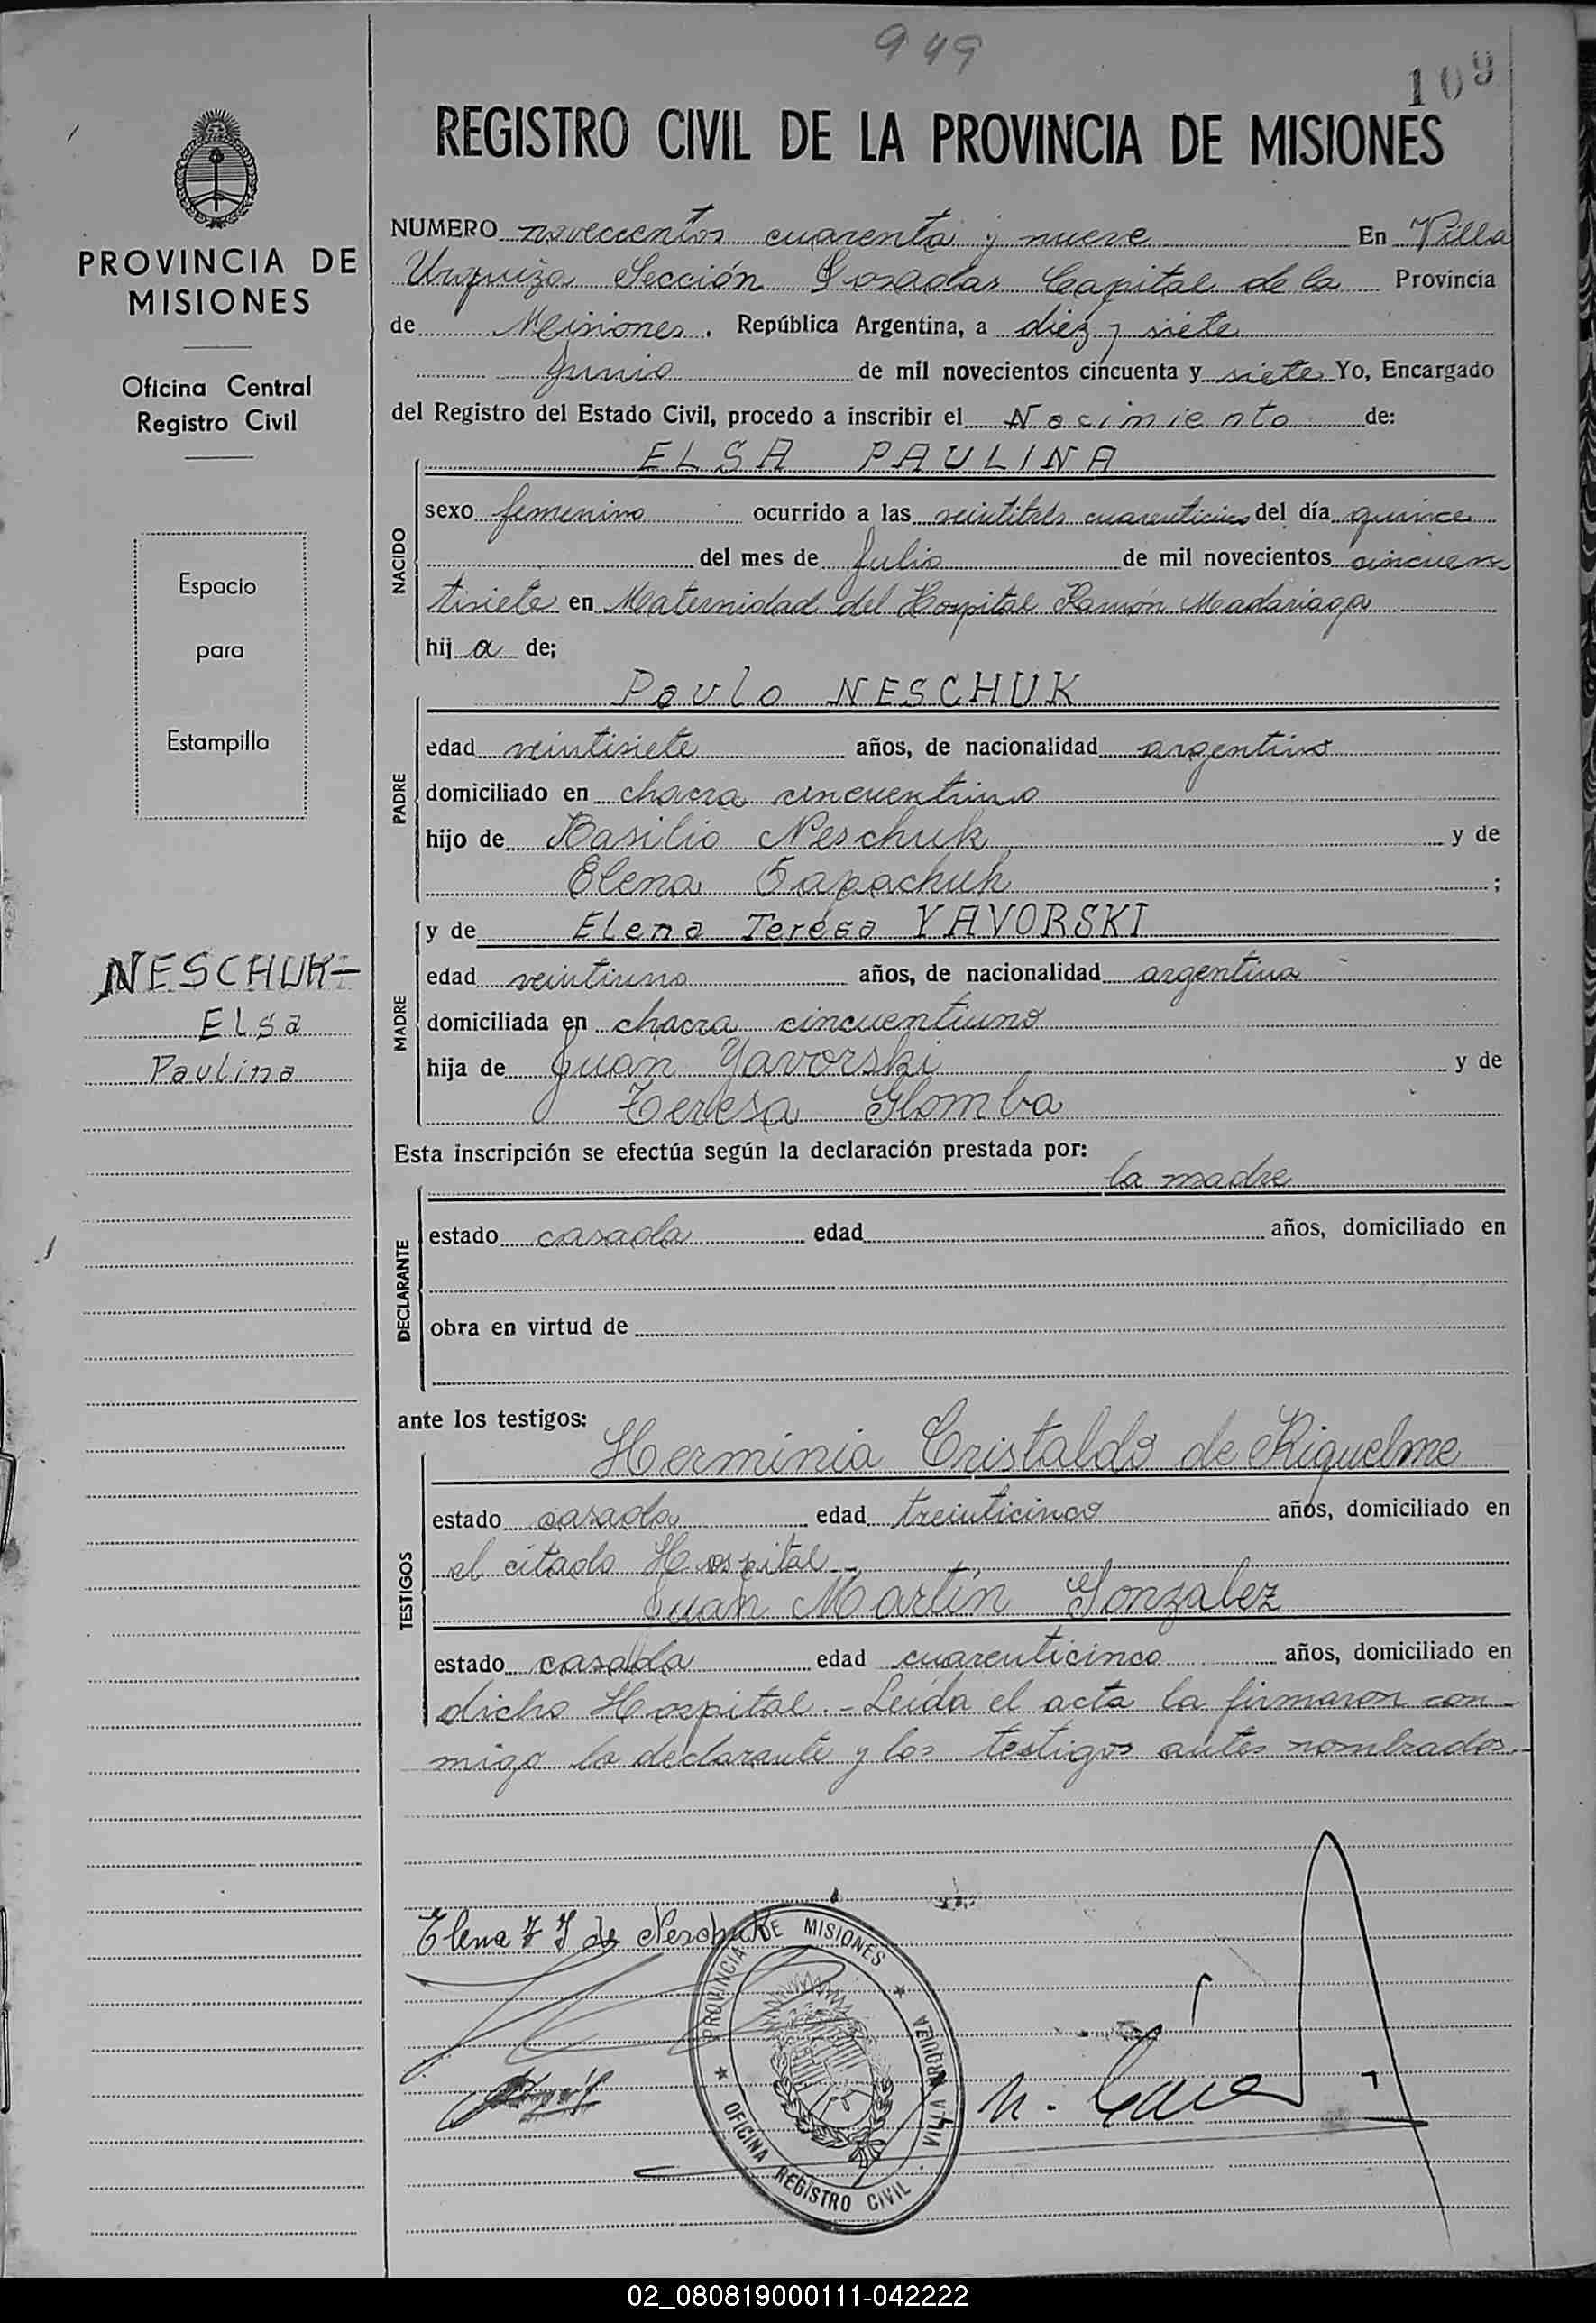 949
109
REGISTRO CIVIL DE LA PROVINCIA DE MISIONES
PROVINCIA DE
MISIONES
Oficina Central
Registro Civil
Espacio
para
Estampilla
NESCHUK-
Elsa
Paulina
NUMERO novecientos cuarenta y nueve En Villa
Urquiza Sección Posadas Capital de la Provincia
de Misiones. República Argentina, a diez y siete
Junio de mil novecientos cincuenta y siete Yo, Encargado
del Registro del Estado Civil, procedo a inscribir el Nacimiento de:
ELSA PAULINA
NACIDO
sexo femenino ocurrido a las veintitrés cuarenticinco del día quince
del mes de Julio de mil novecientos cincuen
tisiete en Maternidad del Hospital Ramón Madariaga
hij a de;
Paulo NESCHUK
PADRE
edad veintisiete años, de nacionalidad argentino
domiciliado en chacra cincuentiuno
hijo de Basilio Neschuk y de
Elena Sapachuk ;
y de Elena Teresa YAVORSKI
MADRE
edad veintiuno años, de nacionalidad argentina
domiciliada en chacra cincuentiuno
hija de Juan Yavorski y de
Teresa Glomba
Esta inscripción se efectúa según la declaración prestada por:
la madre
DECLARANTE
estado casada edad años, domiciliado en
obra en virtud de
ante los testigos:
Herminia Cristaldo de Riquelme
TESTIGOS
estado casada edad treinticinco años, domiciliado en
el citado Hospital.-
Juan Martín Gonzalez
estado casada edad cuarenticinco años, domiciliado en
dicho Hospital.- Leída el acta la firmaron con-
migo la declarante y los testigos antes nombrados.-
Elena T Y de Neschuk
PROVINCIA DE MISIONES
VILLA URQUIZA
OFICINA REGISTRO CIVIL
02_080819000111-042222